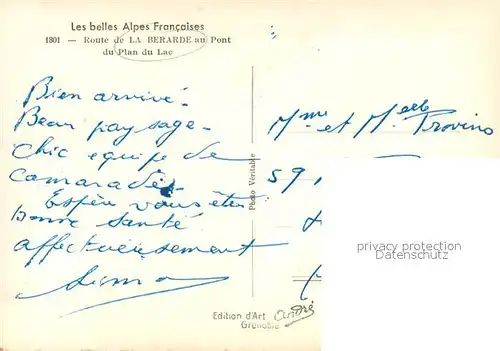 Les belles Alpes Françaises
1801 — Route de LA BERARDE au Pont
du Plan du Lac
Bien arrivé.
Beau paysage.
Chic equipe de
camarades.
Espère vous êtes
bonne santé
affectueusement
Mme et Melle Provino
59,
Photo Véritable
privacy protection
www.akpool.co.uk
Edition d'Art André
Grenoble